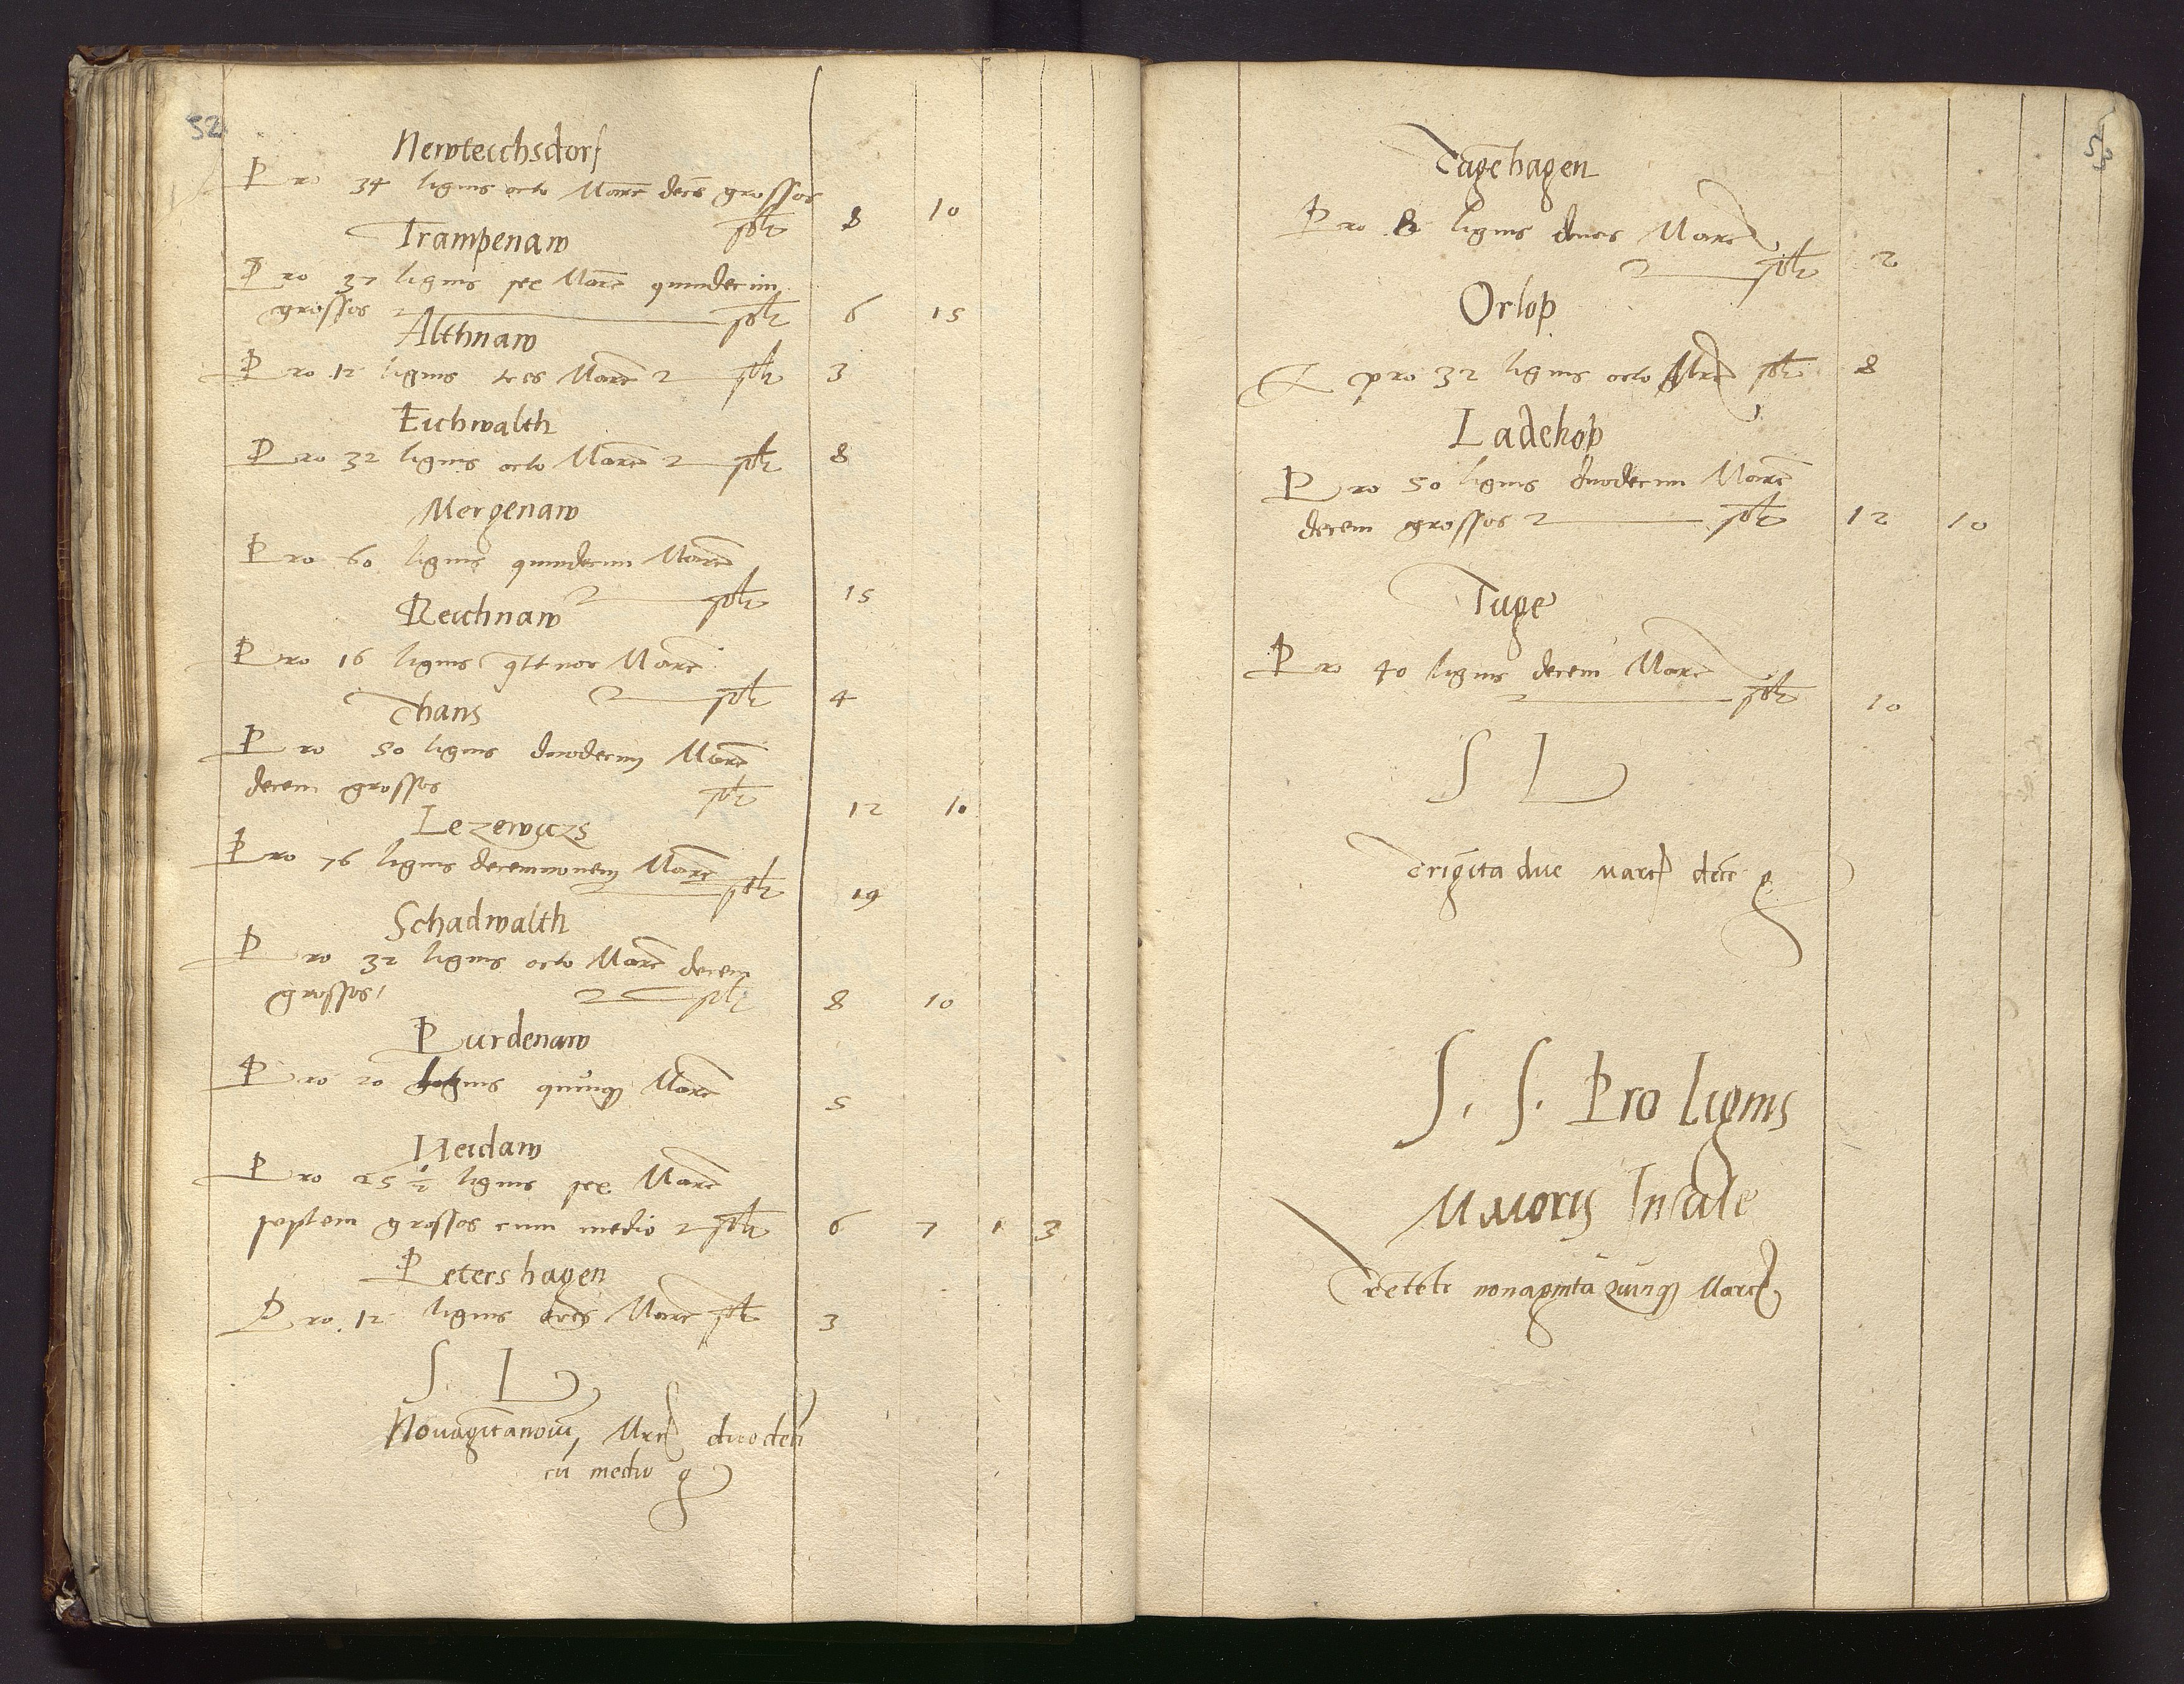 52
Newteichsdorf
Pro 34 lignis octo Marc deces grossos
solt 8 10
Trampenaw
Pro 37 lignis sex Marc quindecim
grossos solt 6 15
Althnaw
Pro 12 lignis tres Marc solt 3
Eichwalth
Pro 32 lignis octo Marc solt 8
Mergenaw
Pro 60 lignis quindecim Marc
solt 15
Reichnaw
Pro 16 lignis qttuor Marc
solt 4
Thans
Pro 50 lignis duodecim Marc
decem grossos solt 12 10
Lezewiczs
Pro 76 lignis decemnonem Marc
solt 19
Schadwalth
Pro 32 lignis octo Marc decem
grossos solt 8 10
Purdenaw
Pro 20 lignis quinq Marc 5
Heidaw
Pro 25 ½ lignis sex Marc
septem grossos cum medio solt 6 7 1 3
Petershagen
Pro 12 lignis tres Marc solt 3
S L
Nonagitanovem, Mrc duodeci
cu medio g
53
Tagehagen
Pro 8 lignis duas Marc
solt 2
Orlop
pro 32 lignis octo Mrc solt 8
Ladekop
Pro 50 lignis duodecim Marc
decem grossos solt 12 10
Tuge
Pro 40 lignis decem Marc
solt 10
S L
Trigita due marc dece g
S. S. Pro Lignis
Maioris Insule
nonaginta quinq Marc